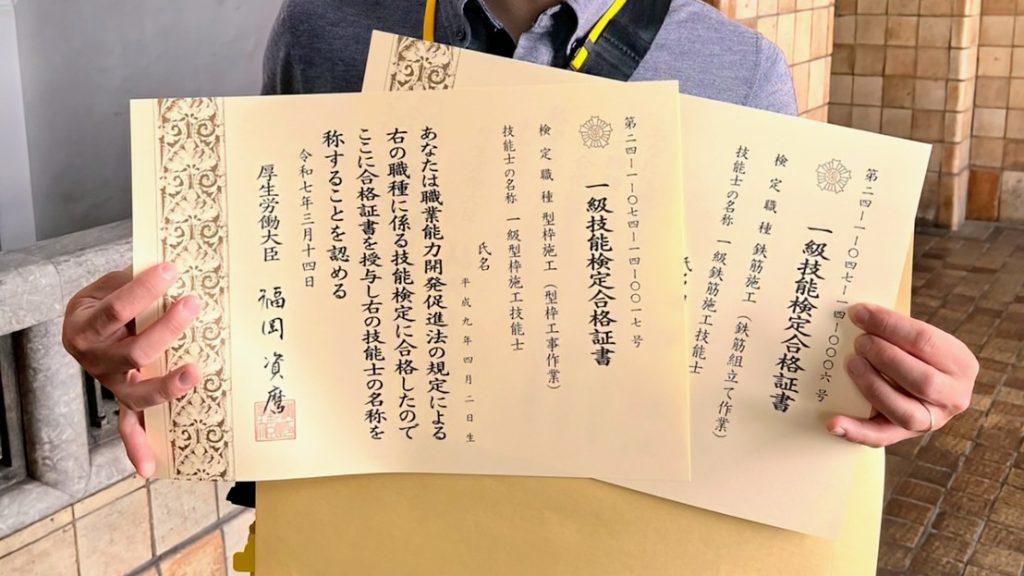 第二四-一-〇七四-一四-〇〇一七号
一級技能検定合格証書
検定職種 型枠施工（型枠工事作業）
技能士の名称 一級型枠施工技能士
氏名
平成九年四月二日生
あなたは職業能力開発促進法の規定による
右の職種に係る技能検定に合格したので
ここに合格証書を授与し右の技能士の名称を
称することを認める
令和七年三月十四日
厚生労働大臣 福岡資麿
第二四-一-〇四七-一四-〇〇〇六号
一級技能検定合格証書
検定職種 鉄筋施工（鉄筋組立て作業）
技能士の名称 一級鉄筋施工技能士